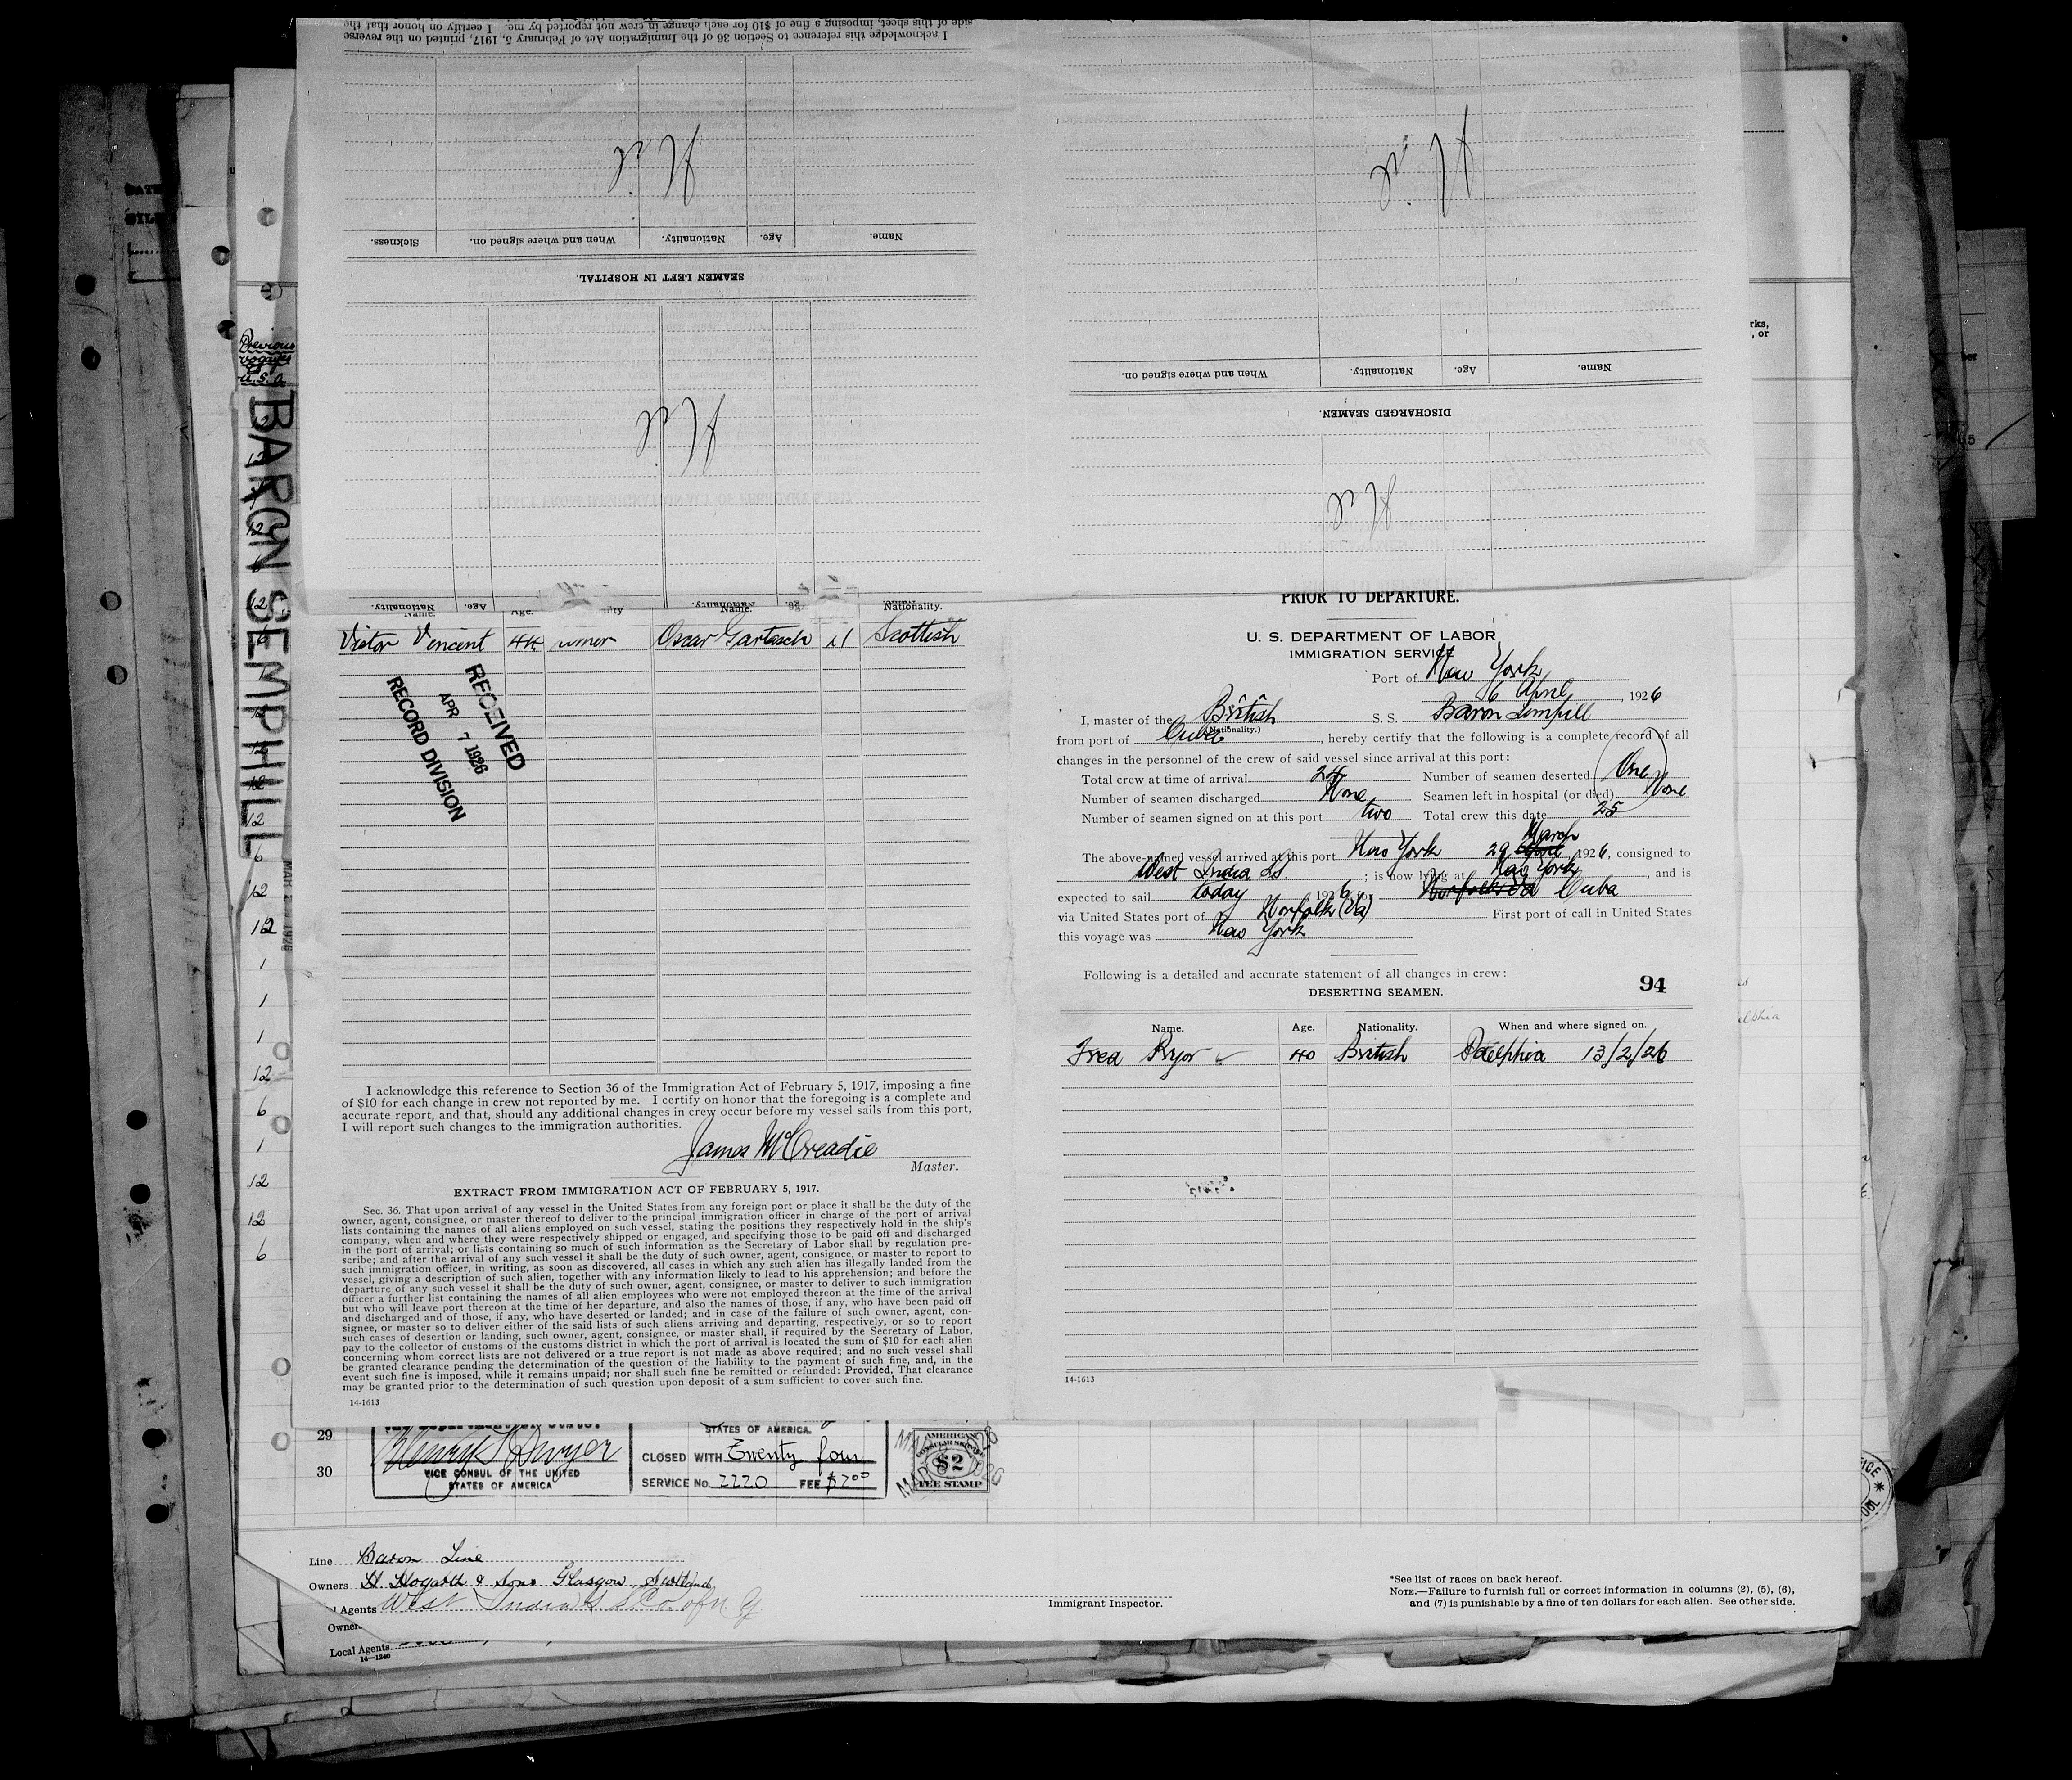 side of this sheet, imposing a fine of $10 for each change in crew not reported by me. I certify on honor that the
I acknowledge this reference to Section 36 of the Immigration Act of February 5, 1917, printed on the reverse
Nil
Name. Age. Nationality. When and where signed on. Sickness.
SEAMEN LEFT IN HOSPITAL.
Nil
Nationality. Age. Nationality.
Nil
Name. Age. Nationality. When and where signed on.
DISCHARGED SEAMEN.
Nil
Previous
voyages
U.S.A.
BARON SEMPHILL
Name. Age. Name. Nationality.
Victor Vincent 44 Oscar Gartsch 21 Scottish
RECEIVED
APR 7 1926
RECORD DIVISION
I acknowledge this reference to Section 36 of the Immigration Act of February 5, 1917, imposing a fine
of $10 for each change in crew not reported by me. I certify on honor that the foregoing is a complete and
accurate report, and that, should any additional changes in crew occur before my vessel sails from this port,
I will report such changes to the immigration authorities.
James McCreadie
Master.
EXTRACT FROM IMMIGRATION ACT OF FEBRUARY 5, 1917.
Sec. 36. That upon arrival of any vessel in the United States from any foreign port or place it shall be the duty of the
owner, agent, consignee, or master thereof to deliver to the principal immigration officer in charge of the port of arrival
lists containing the names of all aliens employed on such vessel, stating the positions they respectively hold in the ship's
company, when and where they were respectively shipped or engaged, and specifying those to be paid off and discharged
in the port of arrival; or lists containing so much of such information as the Secretary of Labor shall by regulation pre-
scribe; and after the arrival of any such vessel it shall be the duty of such owner, agent, consignee, or master to report to
such immigration officer, in writing, as soon as discovered, all cases in which any such alien has illegally landed from the
vessel, giving a description of such alien, together with any information likely to lead to his apprehension; and before the
departure of any such vessel it shall be the duty of such owner, agent, consignee, or master to deliver to such immigration
officer a further list containing the names of all alien employees who were not employed thereon at the time of the arrival
but who will leave port thereon at the time of her departure, and also the names of those, if any, who have been paid off
and discharged and of those, if any, who have deserted or landed; and in case of the failure of such owner, agent, con-
signee, or master so to deliver either of the said lists of such aliens arriving and departing, respectively, or so to report
such cases of desertion or landing, such owner, agent, consignee, or master shall, if required by the Secretary of Labor,
pay to the collector of customs of the customs district in which the port of arrival is located the sum of $10 for each alien
concerning whom correct lists are not delivered or a true report is not made as above required; and no such vessel shall
be granted clearance pending the determination of the question of the liability to the payment of such fine, and, in the
event such fine is imposed, while it remains unpaid; nor shall such fine be remitted or refunded: Provided, That clearance
may be granted prior to the determination of such question upon deposit of a sum sufficient to cover such fine.
14-1613
PRIOR TO DEPARTURE.
U. S. DEPARTMENT OF LABOR
IMMIGRATION SERVICE
Port of New York
6 April, 1926
I, master of the British S. S. Baron Sempill
(Nationality.)
from port of Cuba, hereby certify that the following is a complete record of all
changes in the personnel of the crew of said vessel since arrival at this port:
Total crew at time of arrival 24 Number of seamen deserted One
Number of seamen discharged None Seamen left in hospital (or died) None
Number of seamen signed on at this port two Total crew this date 25
March
The above-named vessel arrived at this port New York 29 April, 1926, consigned to
West India SS; is now lying at New York, and is
expected to sail today 1926 Cuba
via United States port of Norfolk (Va) First port of call in United States
this voyage was New York
Following is a detailed and accurate statement of all changes in crew:
DESERTING SEAMEN. 94
Name. Age. Nationality. When and where signed on.
Fred Pryor 40 British 13/2/26
14-1613
29
30
Henry T Dwyer
VICE CONSUL OF THE UNITED
STATES OF AMERICA
STATES OF AMERICA.
CLOSED WITH Twenty four
SERVICE No. 2220 FEE $2.00
AMERICAN
CONSULAR SERVICE
$2
FEE STAMP
Line Baron Line
Owners H. Hogarth & Sons Glasgow Scotland
Agents West India S S Co of N Y
Owners
Local Agents
14-1240
Immigrant Inspector.
*See list of races on back hereof.
NOTE.—Failure to furnish full or correct information in columns (2), (5), (6),
and (7) is punishable by a fine of ten dollars for each alien. See other side.